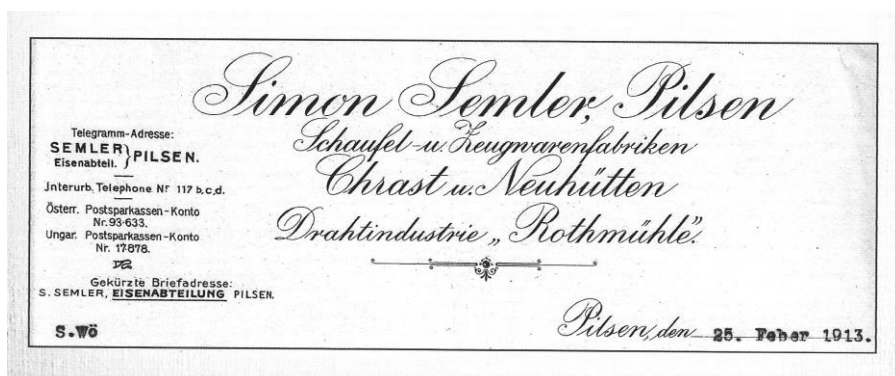 Simon Semler, Pilsen
Schaufel- u. Zeugwarenfabriken
Chrast u. Neuhütten
Drahtindustrie „Rothmühle".
Telegramm-Adresse:
SEMLER } PILSEN.
Eisenabteil.
Jnterurb. Telephone Nr 117 b,c,d.
Österr. Postsparkassen-Konto
Nr. 93·633.
Ungar. Postsparkassen-Konto
Nr. 17878.
Gekürzte Briefadresse:
S. SEMLER, EISENABTEILUNG PILSEN.
S.Wö
Pilsen, den 25. Feber 1913.